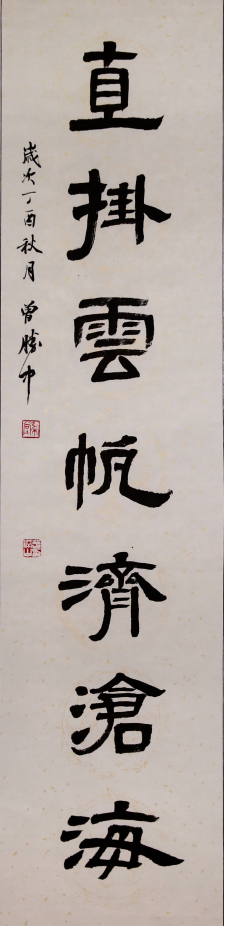 直掛雲帆濟滄海
歲次丁酉秋月 曾勝中